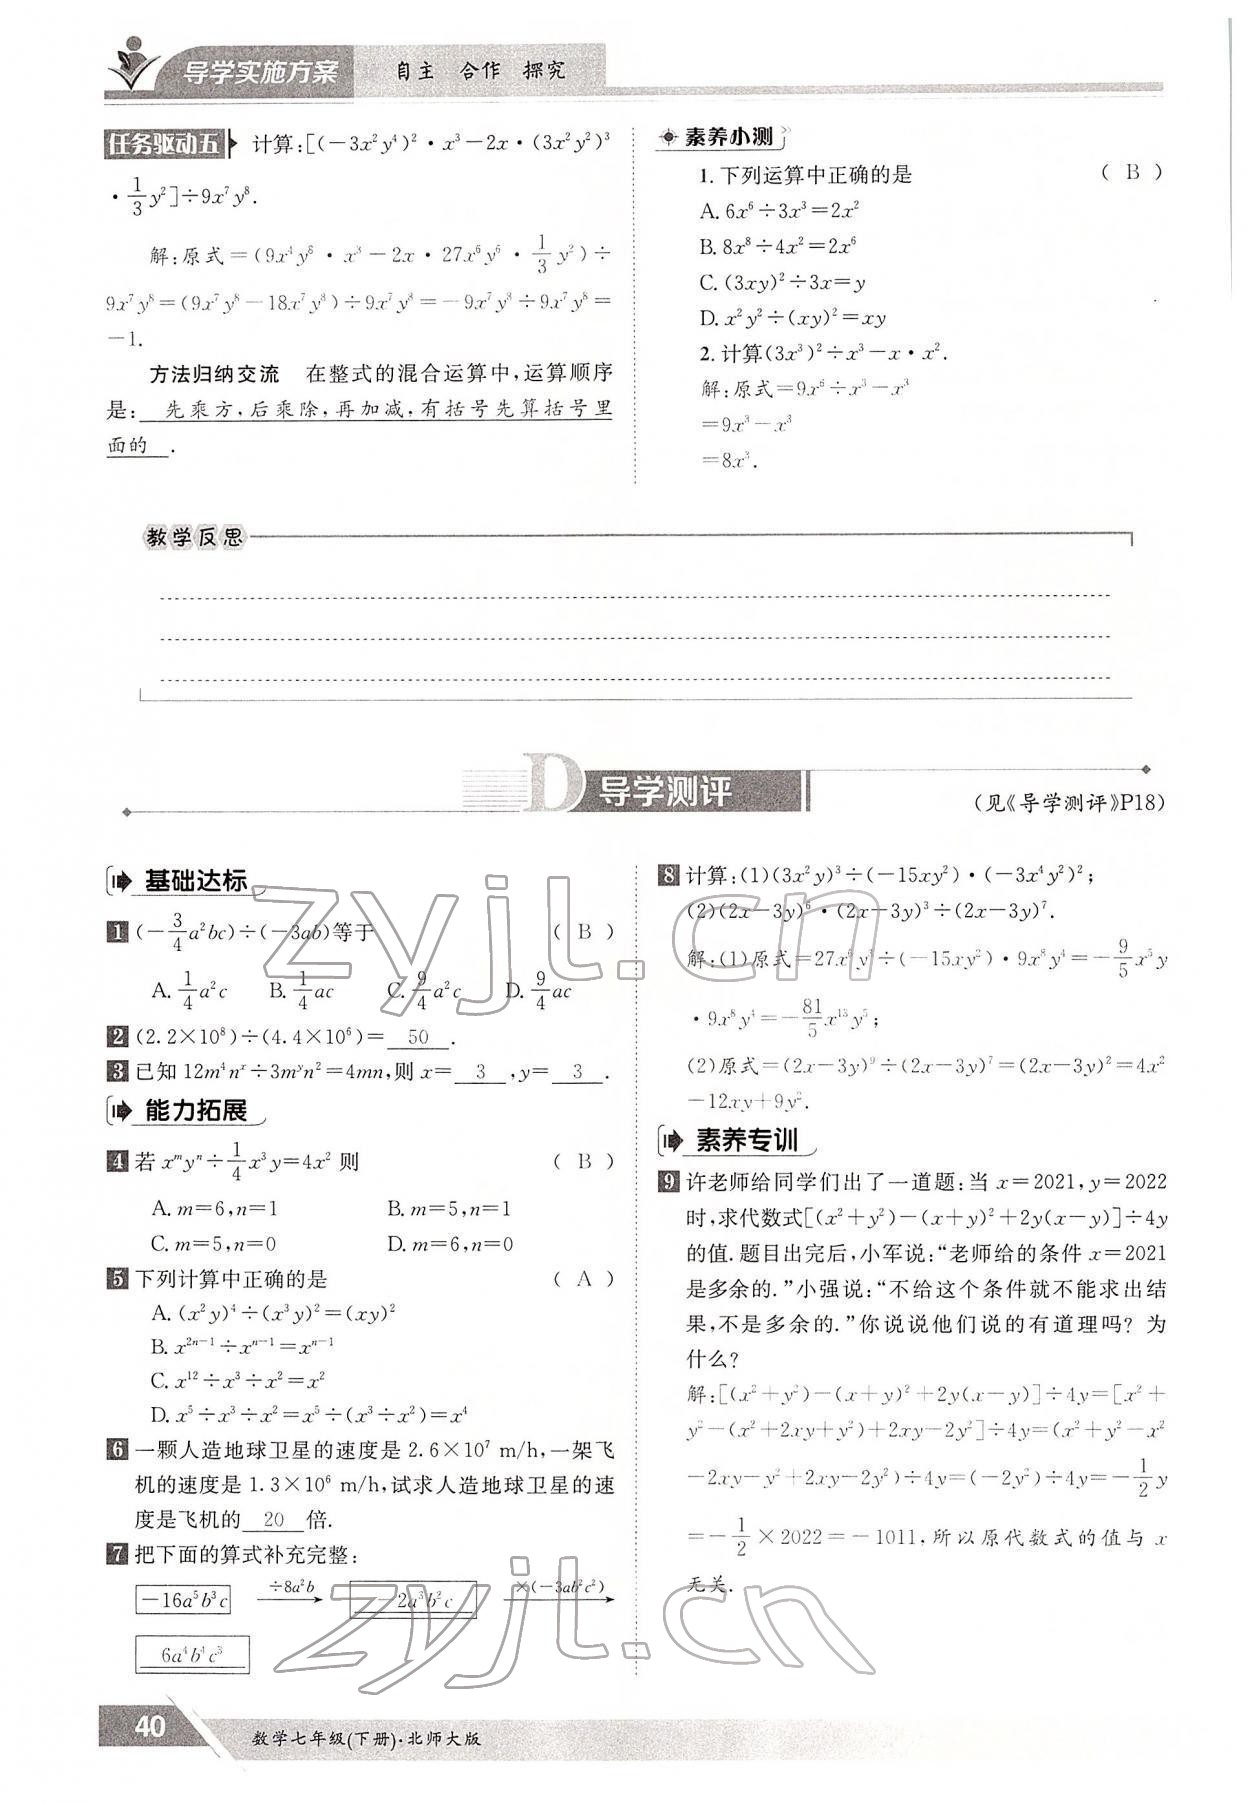 导学实施方案 自主 合作 探究
任务驱动五 计算:[(−3x²y⁴)²·x³−2x·(3x²y²)³
·1/3y²]÷9x⁷y⁸.
解:原式=(9x⁴y⁸·x³−2x·27x⁶y⁶·1/3y²)÷
9x⁷y⁸=(9x⁷y⁸−18x⁷y⁸)÷9x⁷y⁸=−9x⁷y⁸÷9x⁷y⁸=
−1.
方法归纳交流 在整式的混合运算中,运算顺序
是: 先乘方,后乘除,再加减,有括号先算括号里
面的 .
素养小测
1.下列运算中正确的是 ( B )
A.6x⁶÷3x³=2x²
B.8x⁸÷4x²=2x⁶
C.(3xy)²÷3x=y
D.x²y²÷(xy)²=xy
2.计算(3x³)²÷x³−x·x².
解:原式=9x⁶÷x³−x³
=9x³−x³
=8x³.
教学反思
D 导学测评
(见《导学测评》P18)
基础达标
1 (−3/4a²bc)÷(−3ab)等于 ( B )
A.1/4a²c B.1/4ac C.9/4a²c D.9/4ac
2 (2.2×10⁸)÷(4.4×10⁶)= 50 .
3 已知12m⁴nˣ÷3mʸn²=4mn,则x= 3 ,y= 3 .
能力拓展
4 若xᵐyⁿ÷1/4x³y=4x²则 ( B )
A.m=6,n=1 B.m=5,n=1
C.m=5,n=0 D.m=6,n=0
5 下列计算中正确的是 ( A )
A.(x²y)⁴÷(x³y)²=(xy)²
B.x²ⁿ⁻¹÷xⁿ⁻¹=xⁿ⁻¹
C.x¹²÷x³÷x²=x²
D.x⁵÷x³÷x²=x⁵÷(x³÷x²)=x⁴
6 一颗人造地球卫星的速度是2.6×10⁷ m/h,一架飞
机的速度是1.3×10⁶ m/h,试求人造地球卫星的速
度是飞机的 20 倍.
7 把下面的算式补充完整:
−16a⁵b³c ÷8a²b −2a³b²c ×(−3ab²c²)
6a⁴b⁴c³
8 计算:(1)(3x²y)³÷(−15xy²)·(−3x⁴y²)²;
(2)(2x−3y)⁶·(2x−3y)³÷(2x−3y)⁷.
解:(1)原式=27x⁶y³÷(−15xy²)·9x⁸y⁴=−9/5x⁵y
·9x⁸y⁴=−81/5x¹³y⁵;
(2)原式=(2x−3y)⁹÷(2x−3y)⁷=(2x−3y)²=4x²
−12xy+9y².
素养专训
9 许老师给同学们出了一道题:当x=2021,y=2022
时,求代数式[(x²+y²)−(x+y)²+2y(x−y)]÷4y
的值.题目出完后,小军说:“老师给的条件x=2021
是多余的.”小强说:“不给这个条件就不能求出结
果,不是多余的.”你说说他们说的有道理吗?为
什么?
解:[(x²+y²)−(x+y)²+2y(x−y)]÷4y=[x²+
y²−(x²+2xy+y²)+2xy−2y²]÷4y=(x²+y²−x²
−2xy−y²+2xy−2y²)÷4y=(−2y²)÷4y=−1/2y
=−1/2×2022=−1011,所以原代数式的值与x
无关.
zyjl.cn
zyjl.cn
40 数学七年级(下册)·北师大版